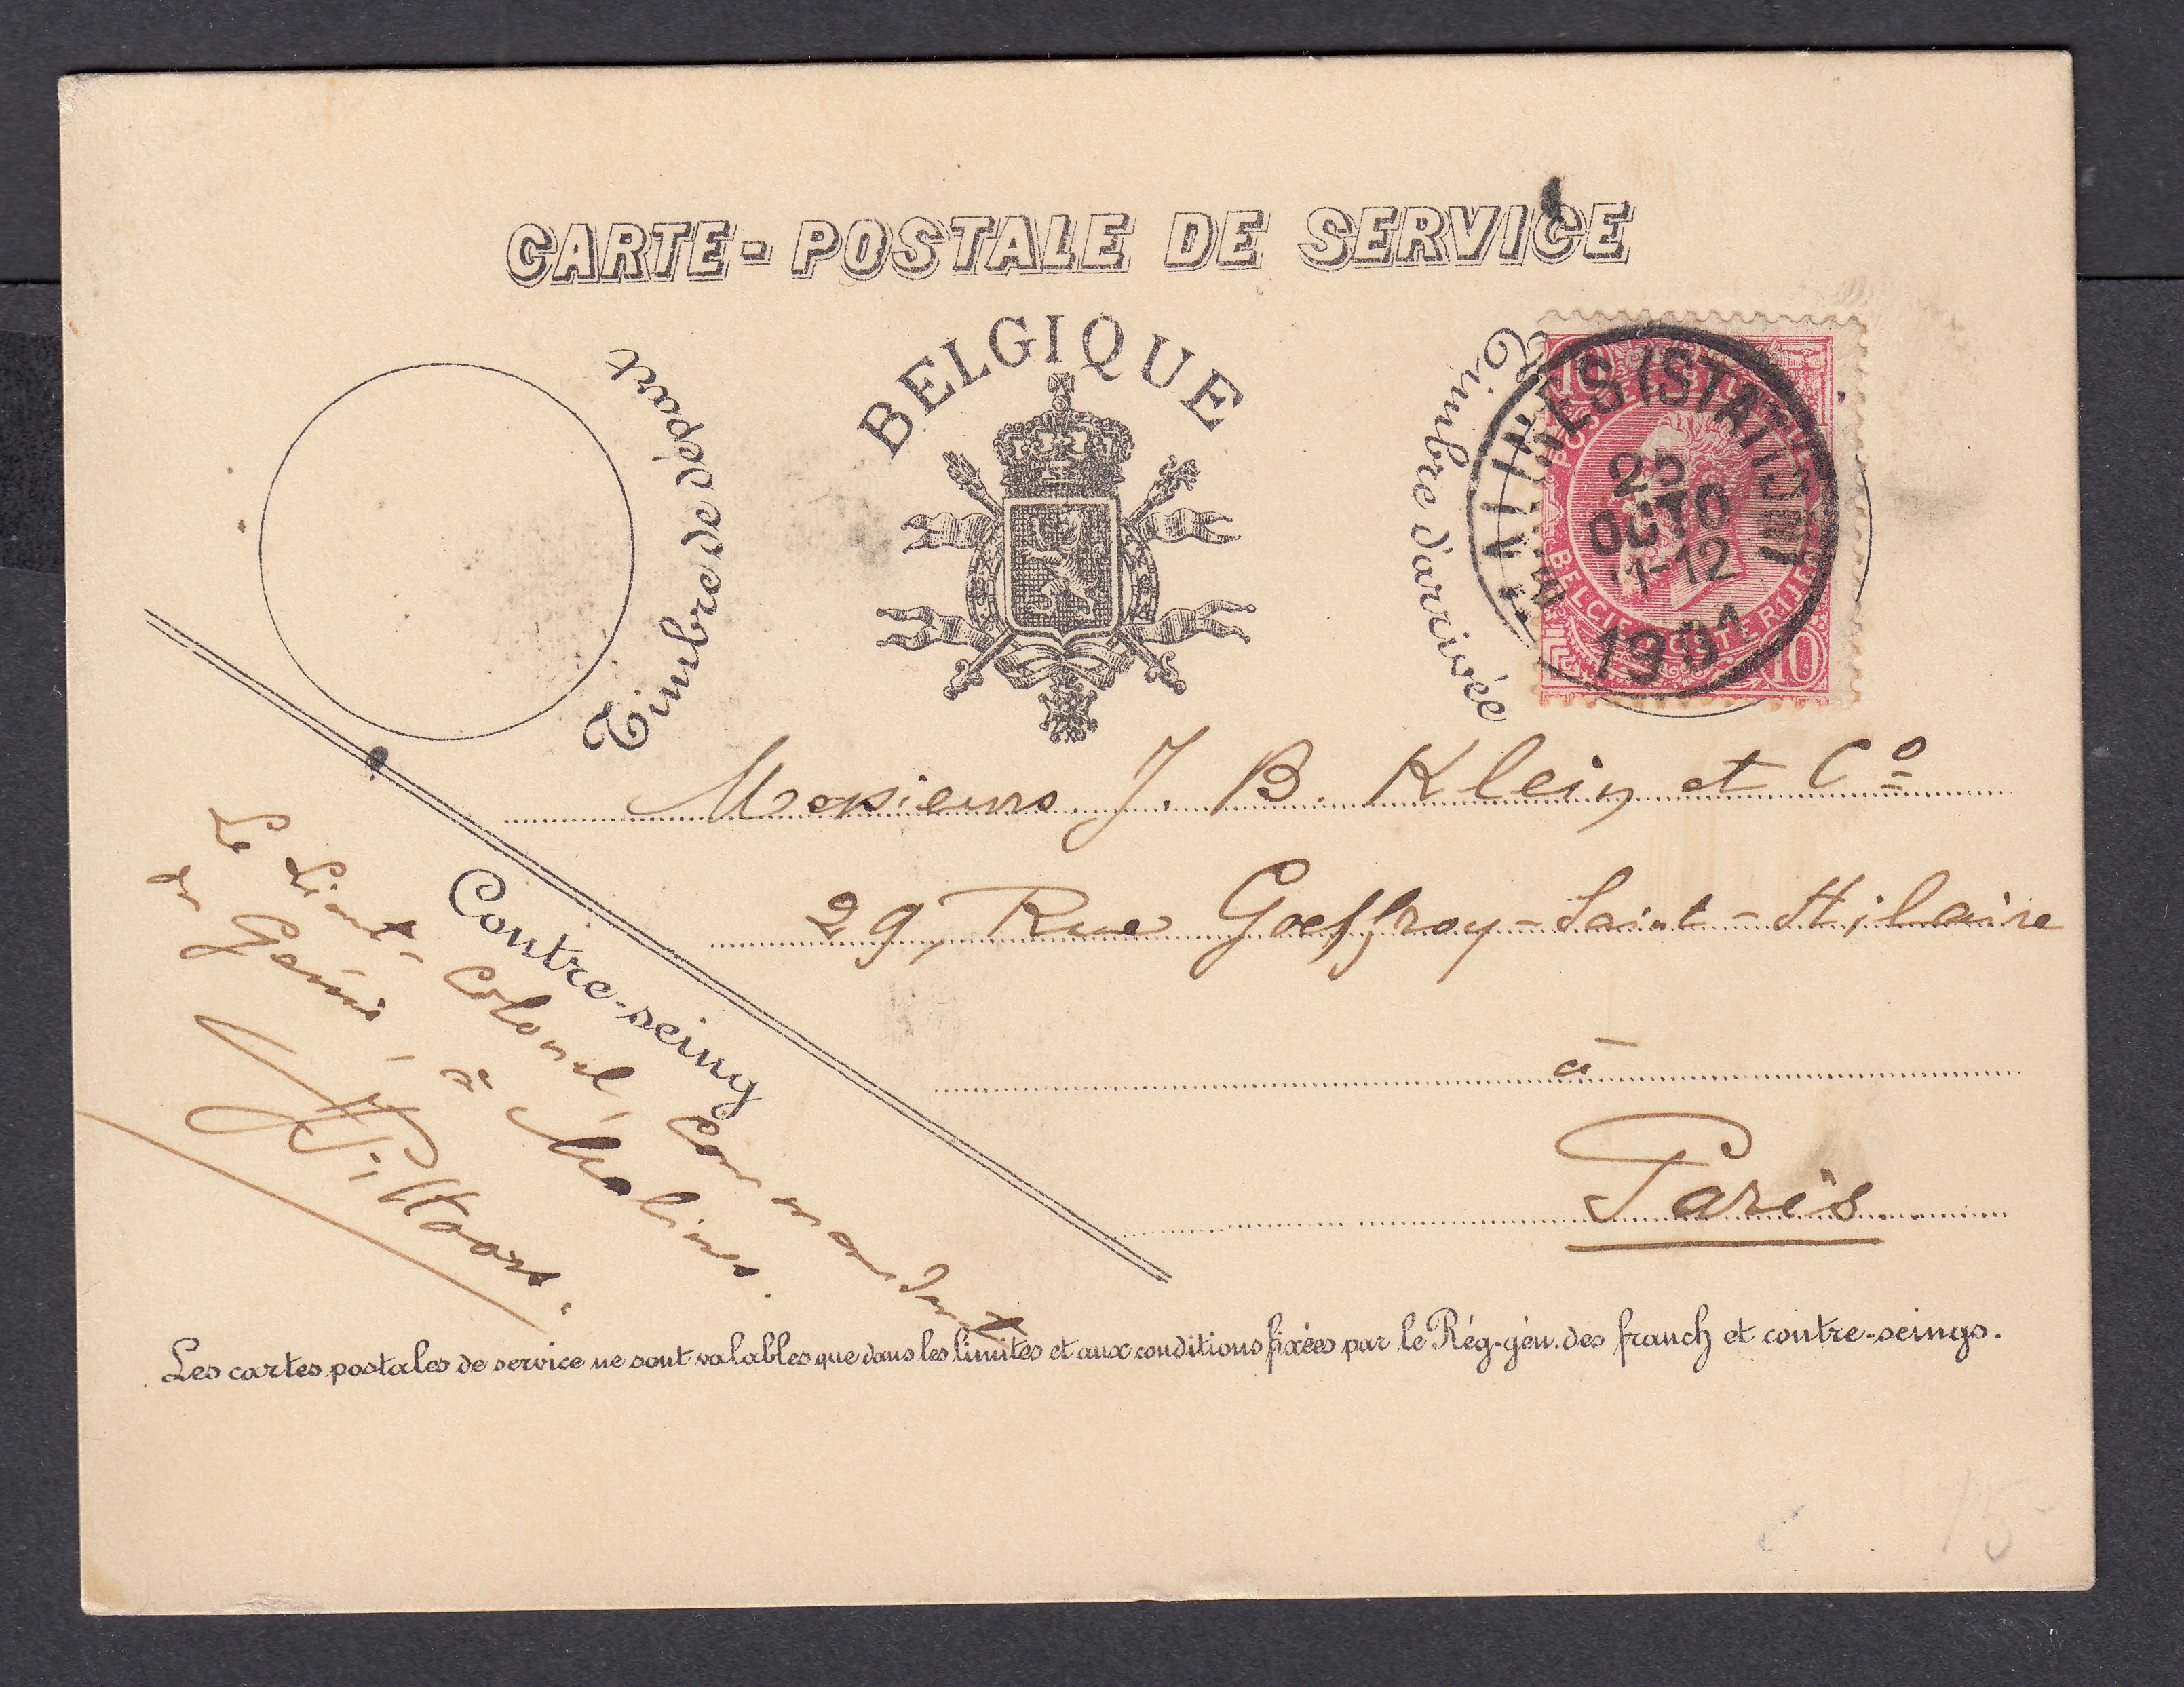 CARTE-POSTALE DE SERVICE
BELGIQUE
Timbre de départ
Timbre d'arrivée
10 10
BELGIE POSTERIJEN
(STATION)
25
OCTO
11-12
1901
Messieurs J. B. Klein et Cº
29, Rue Goeffroy-Saint-Hilaire
à
Paris
Contre-seing
Le Lieut-Colonel, Commandant
du Génie, à Malines.
Les cartes postales de service ne sont valables que dans les limites et aux conditions fixées par le Rég-gén. des franch et contre-seings.
15-